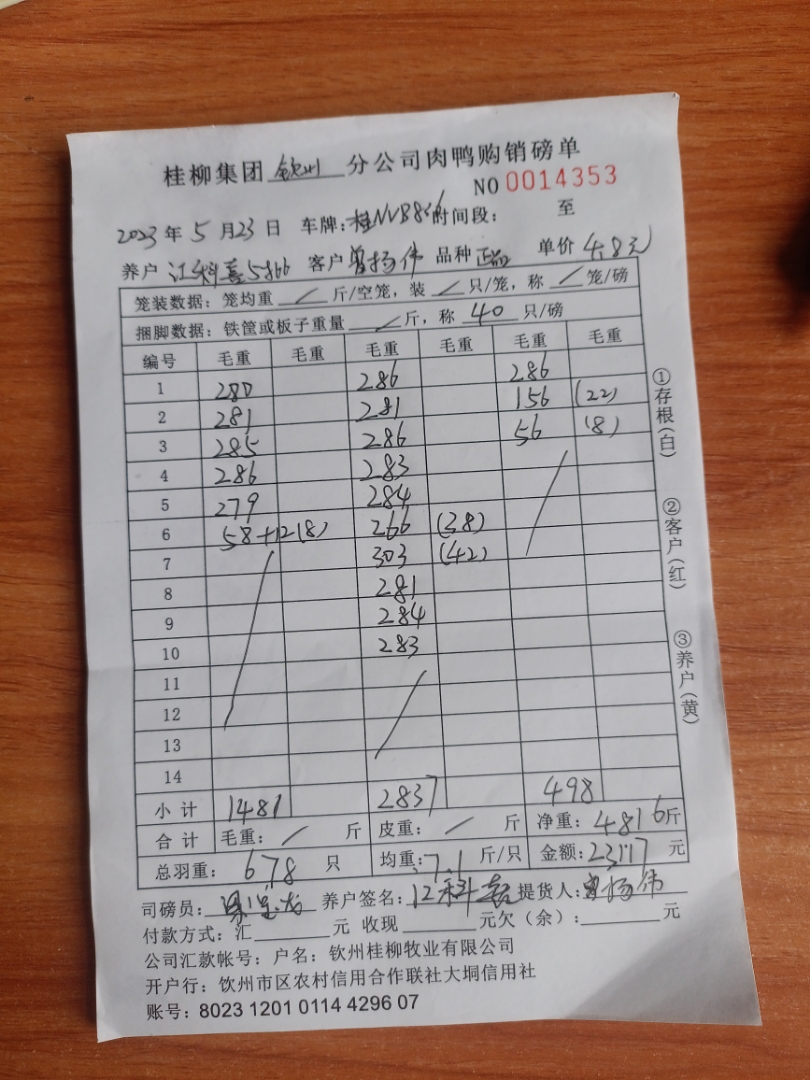 桂柳集团 钦州 分公司肉鸭购销磅单
NO 0014353
2023 年 5 月 23 日 车牌: 时间段: 至
养户 江科喜5866 客户 曾扬伟 品种 正品 单价 4.8元
笼装数据: 笼均重 / 斤/空笼, 装 / 只/笼, 称 / 笼/磅
捆脚数据: 铁筐或板子重量 / 斤, 称 40 只/磅
编号 毛重 毛重 毛重 毛重 毛重 毛重
1 280 286 286
2 281 281 156 (22)
3 285 286 56 (8)
4 286 283
5 279 284
6 58+12(8) 266 (38)
7 303 (42)
8 281
9 284
10 283
11
12
13
14
小计 1481 2837 498
合计 毛重: / 斤 皮重: / 斤 净重: 4816斤
总羽重: 678 只 均重: 7.1 斤/只 金额: 23117 元
司磅员: 养户签名: 江科喜 提货人: 曾扬伟
付款方式: 汇 元 收现 元欠(余): 元
公司汇款帐号: 户名: 钦州桂柳牧业有限公司
开户行: 钦州市区农村信用合作联社大垌信用社
账号: 8023 1201 0114 4296 07
①存根(白)
②客户(红)
③养户(黄)